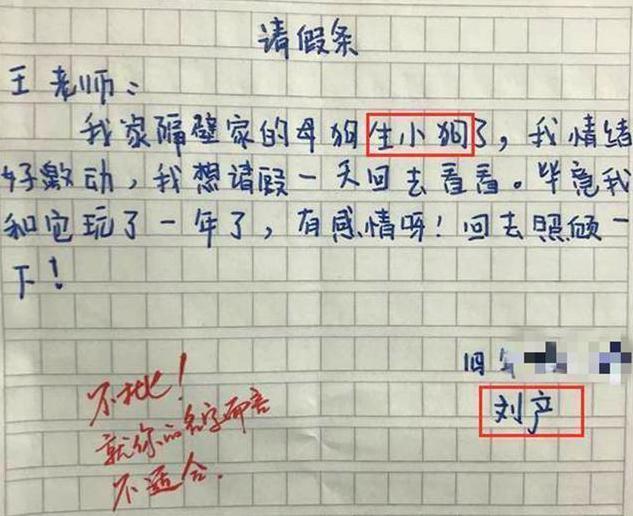 请假条
王老师：
我家隔壁家的母狗生小狗了，我情绪
好激动，我想请假一天回去看看。毕竟我
和它玩了一年了，有感情呀！回去照顾一
下！
刘产
不批！
就你的名字而言
不适合.